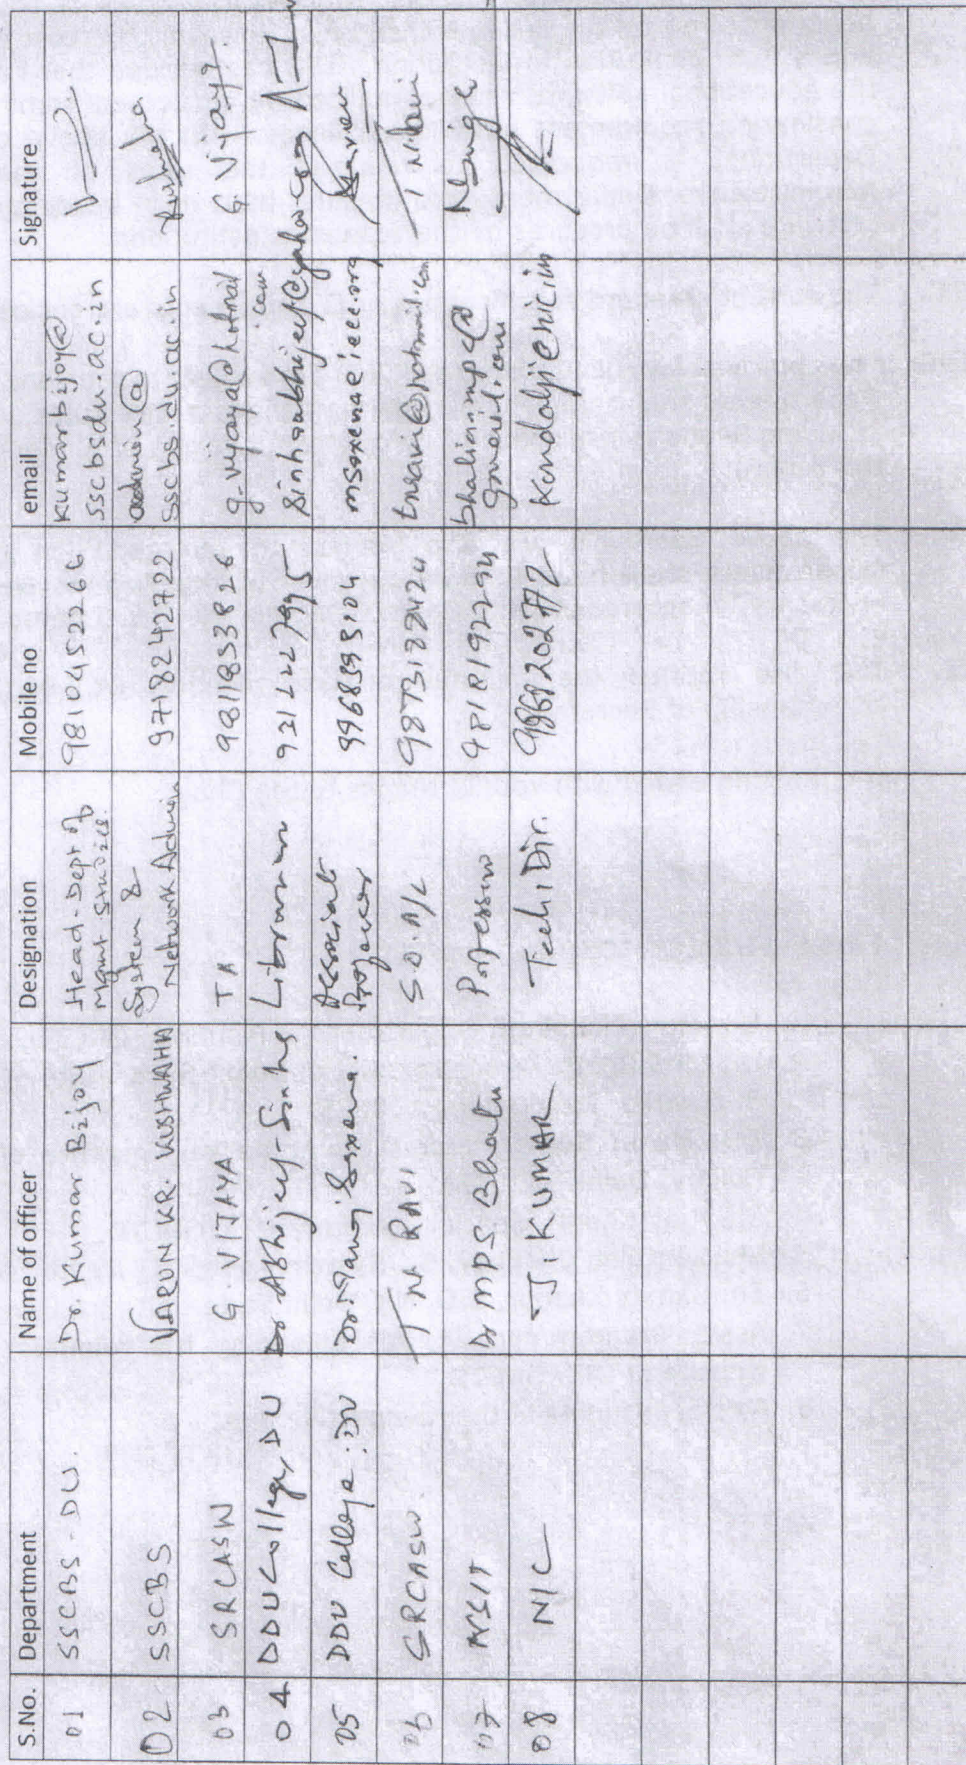 S.No. Department Name of officer Designation Mobile no email Signature
01 SSCBS-DU. Dr. Kumar Bijoy Head-Dept of Mgmt studies. 9810452266 kumarbijoy@sscbsdu.ac.in
02 SSCBS VARUN KR. KUSHWAHA System & Network Admin 9718242722 admin@sscbs.du.ac.in Kushwaha
03 SRCASW G VIJAYA TA 9811853826 g-vijaya@hotmail.com G Vijaya
04 DDUCollege, DU Dr Abhijey-Sinha Librarian 921222 7995 Sinhaabhijey@yahoo.com
05 DDU College. DU Dr. Manoj Saxena. Associate Professor 9968393104 msaxena@ieee.org
06 SRCASW T NA RAVI S.O. A/c 9873128424 tnravi@hotmail.com
07 NSIT Dr MPS Bhatia Professor 9818192294 bhatia.mps@gmail.com
08 NIC J. KUMAR Tech. Dir. 9868202772